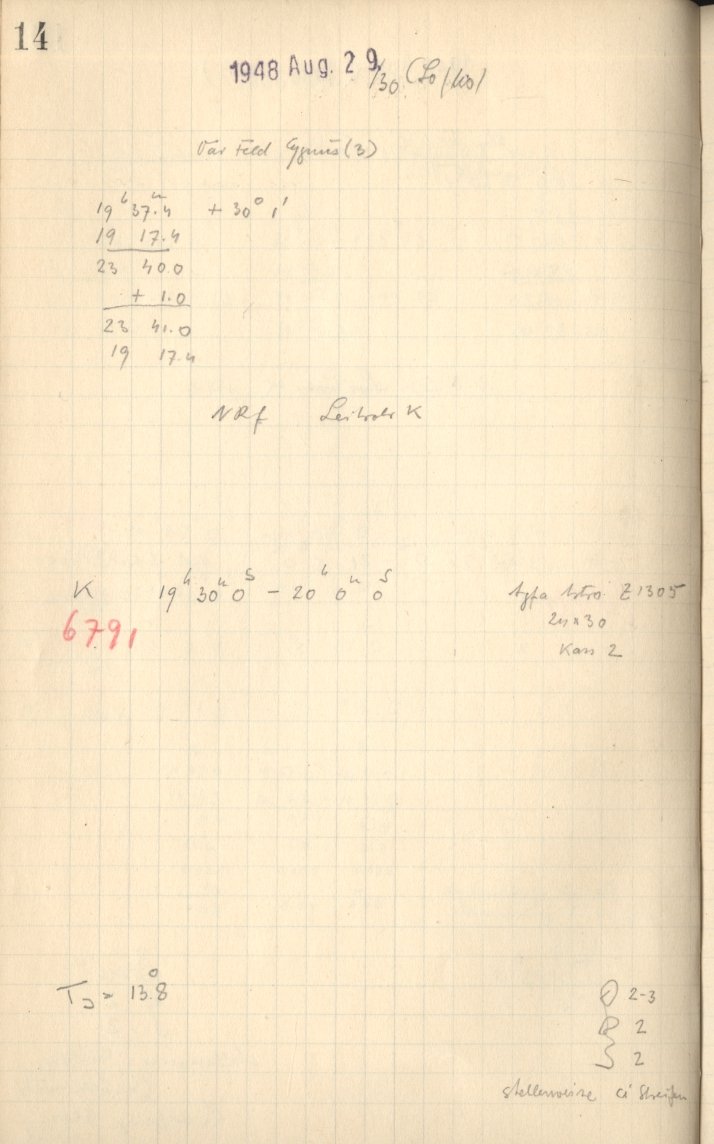 14
1948 Aug. 29/30 (Lo/Ko)
Var Feld Cygnus (3)
19ʰ 37ᵐ.4 + 30° 1'
19 17.4
23 40.0
+ 1.0
23 41.0
19 17.4
NRf Leitrohr K
K 19ʰ 30ᵐ 0ˢ – 20ʰ 0ᵐ 0ˢ Agfa Astro Z1305
6791 24 x 30
Kass 2
T = 13.8° 2-3
2
2
stellenweise Ci Streifen